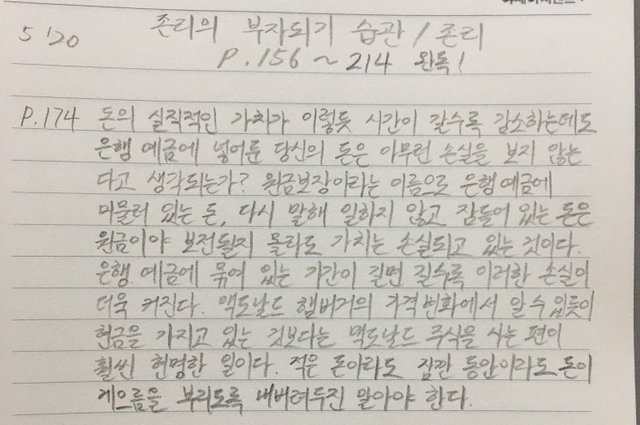 5 '20 존리의 부자되기 습관 / 존리
P.156 ~ 214 완독!
P.174 돈의 실직적인 가치가 이렇듯 시간이 갈수록 감소하는데도
은행 예금에 넣어둔 당신의 돈은 아무런 손실을 보지 않는
다고 생각되는가? 원금보장이라는 이름으로 은행 예금에
머물러 있는 돈, 다시 말해 일하지 않고 잠들어 있는 돈은
원금이야 보전될지 몰라도 가치는 손실되고 있는 것이다.
은행 예금에 묶여 있는 기간이 길면 길수록 이러한 손실이
더욱 커진다. 맥도날드 햄버거의 가격변화에서 알 수 있듯이
현금을 가지고 있는 것보다는 맥도날드 주식을 사는 편이
훨씬 현명한 일이다. 적은 돈이라도 잠깐 동안이라도 돈이
게으름을 부리도록 내버려두진 말아야 한다.